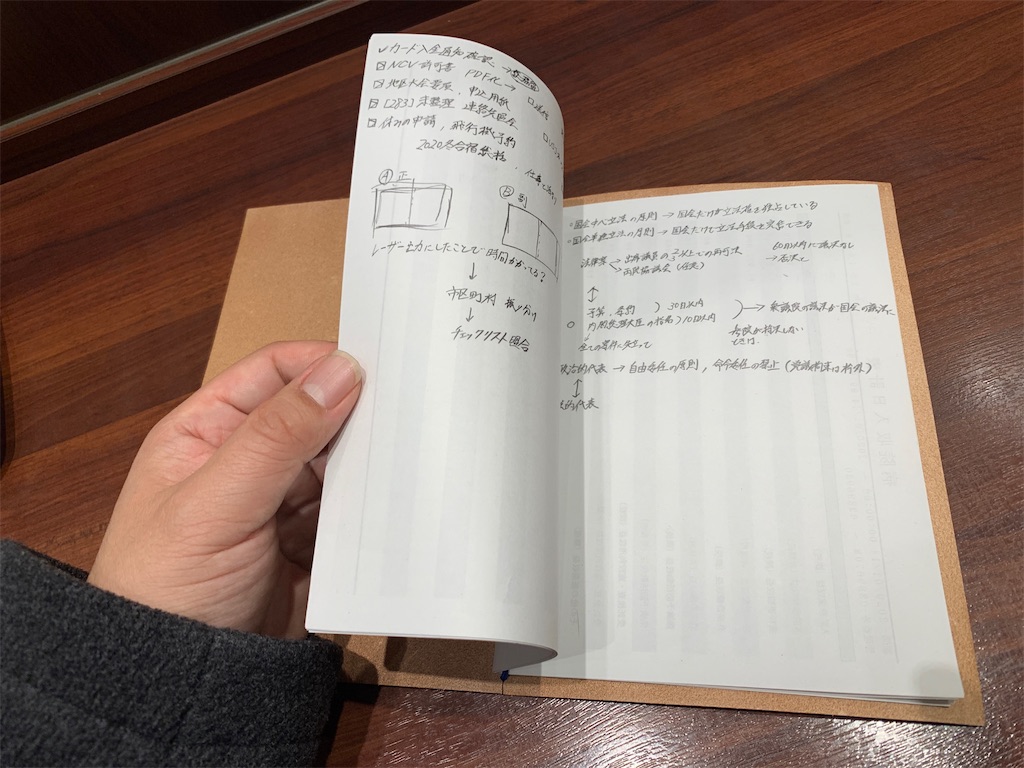 ✓カード入会通知確認 →
☑NCV許可書 PDF化→
☑地区大会要項、申込用紙
☑[283]未整理 連絡先
☑休みの申請、飛行機予約
2020冬合宿
Ⓐ正
Ⓑ副
レーザー出力にしたことで時間かかってる?
↓
市区町村 振り分け
↓
チェックリスト照合
○国会中心立法の原則 → 国会だけが立法権を独占している
○国会単独立法の原則 → 国会だけで立法手続を完成できる
法律案 出席議員の2/3以上での再可決 60日以内に議決なし
両院協議会(任意) →否決と
↕
予算、条約 )30日以内 )→衆議院の議決が国会の議決に
○ 内閣総理大臣の指名)10日以内 参院が議決しない
全ての案件に先立って ときは
政治的代表 → 自由委任の原則、命令委任の禁止(党議拘束は枠外)
↕
的代表